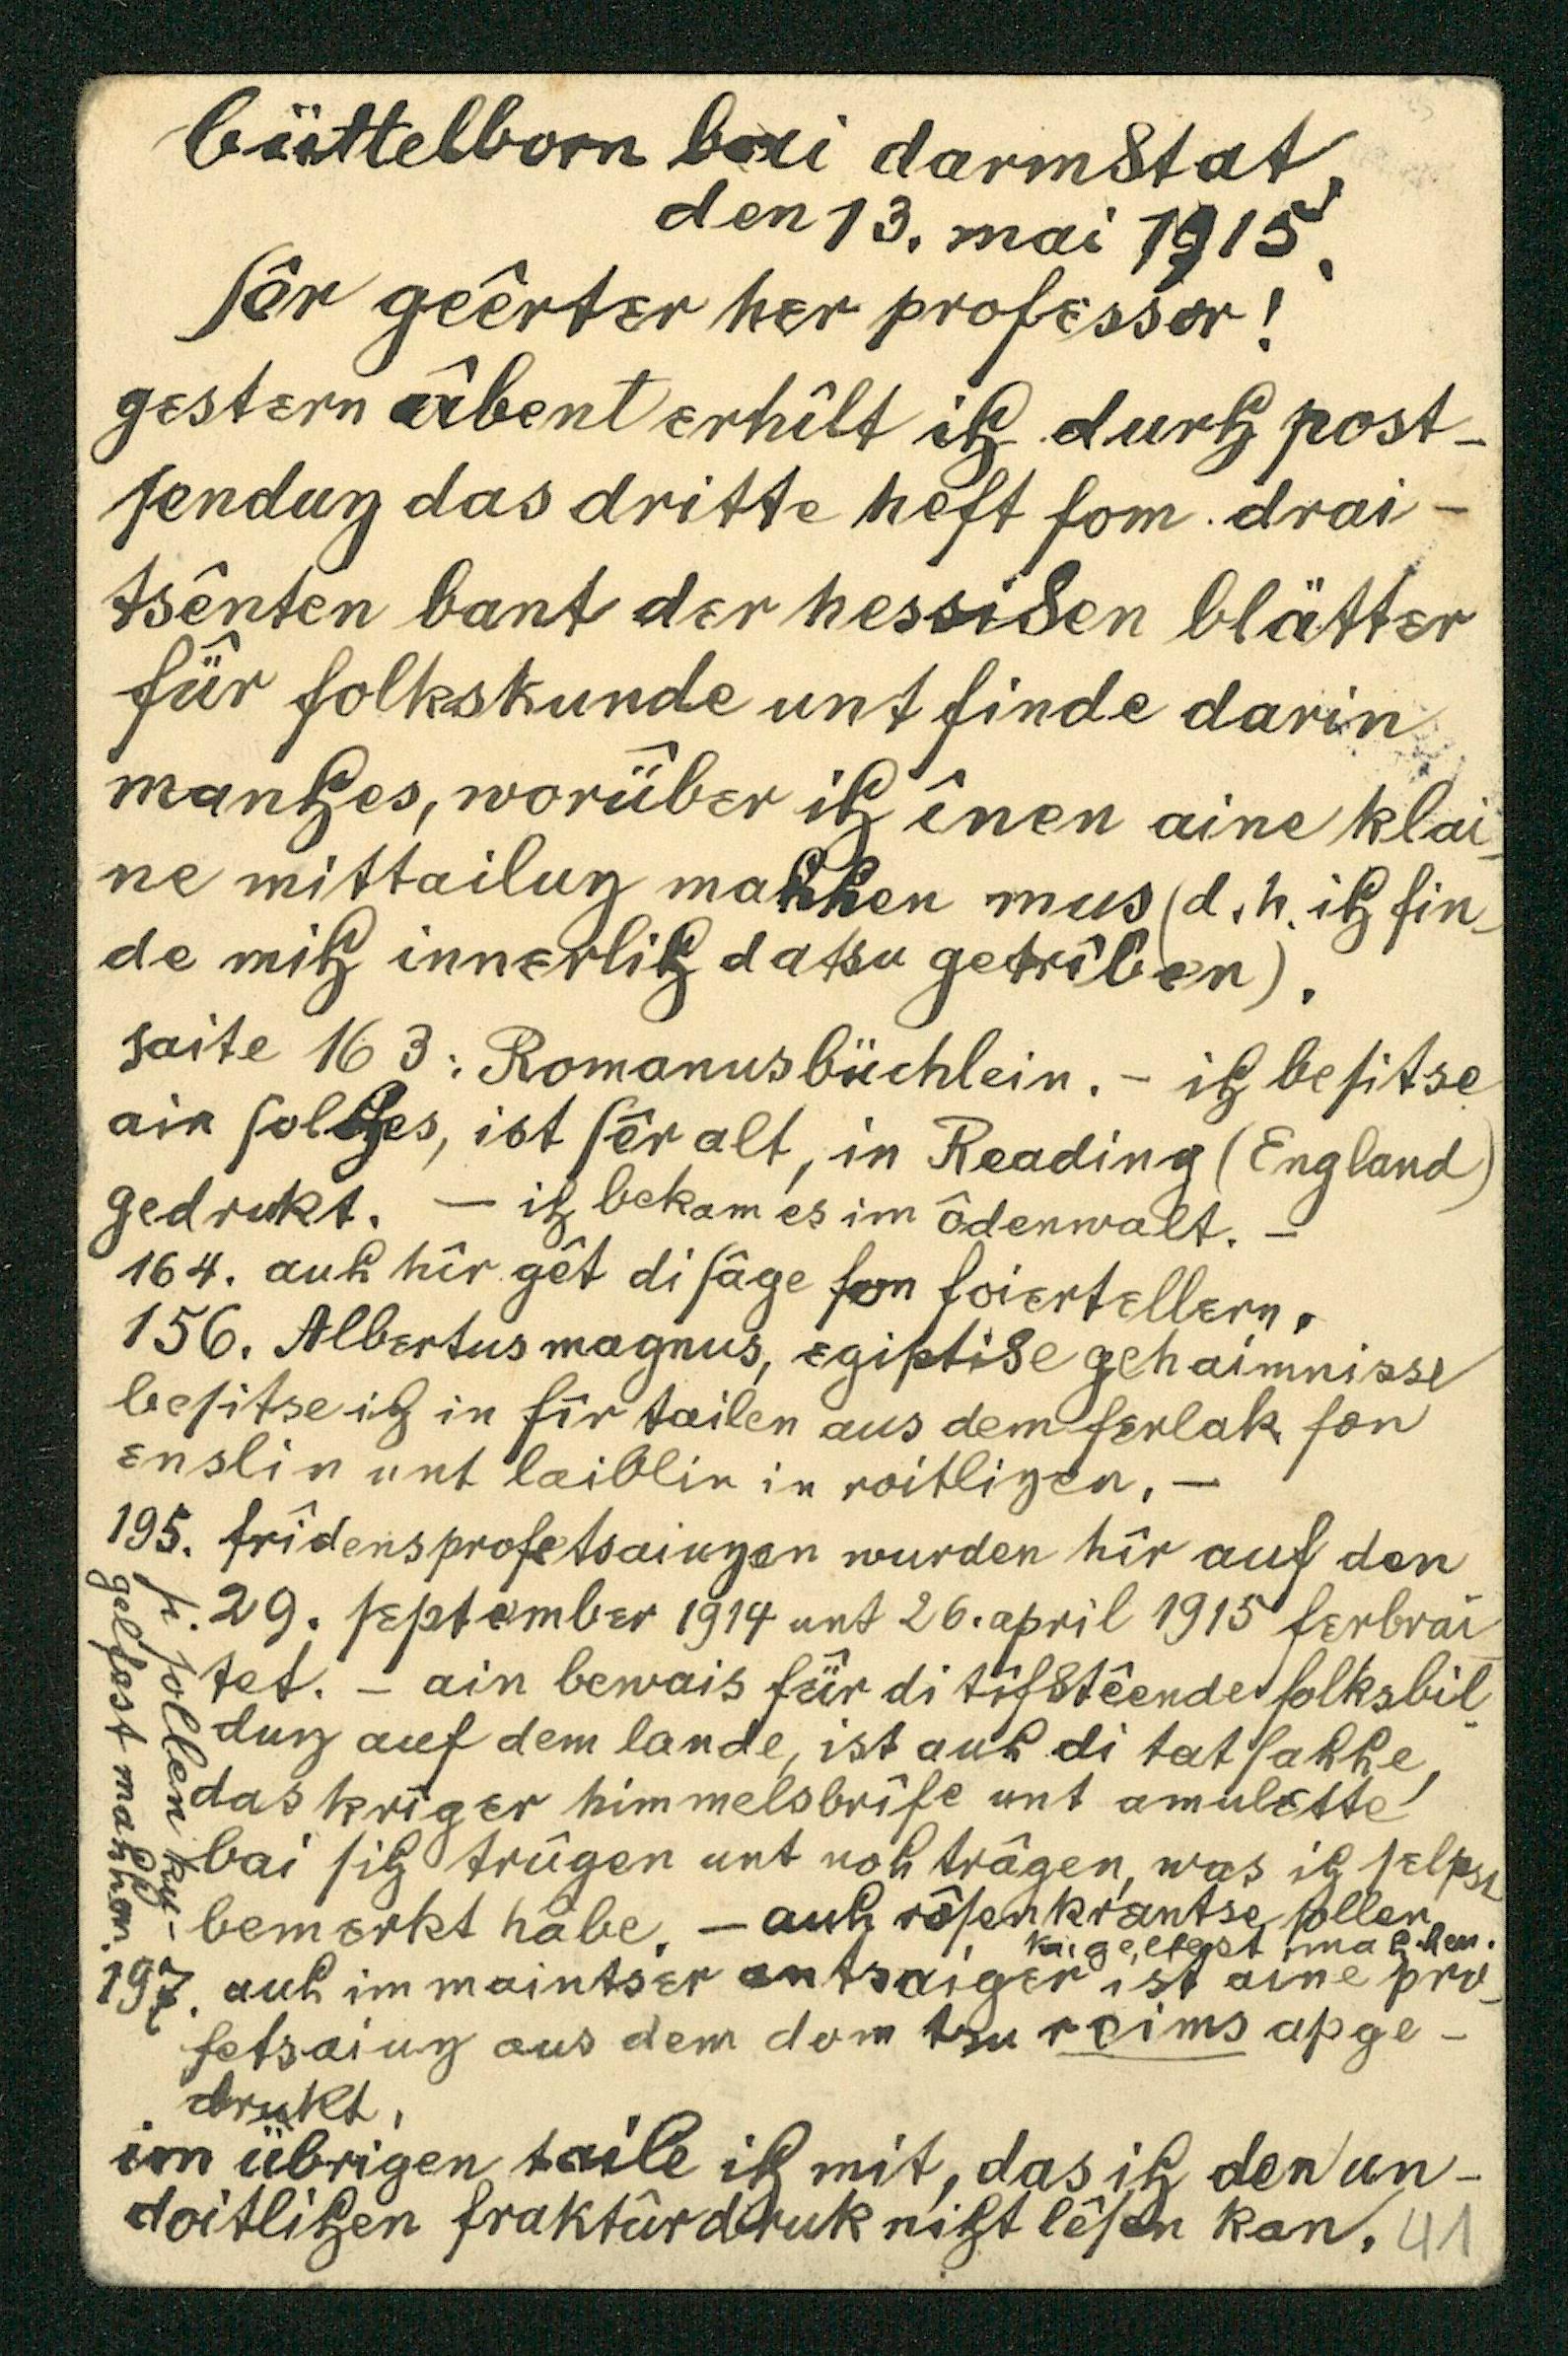 büttelborn bai darmstat,
den 13. mai 1915.
ſêr geêrter her professor!
gestern âbent erhîlt iꜧ durꜧ post-
ſenduŋ das dritte heft fom drai-
tsênten bant der hessiȣen blätter
für folkskunde unt finde darin
manꜧes, worüber iꜧ înen aine klai-
ne mittailuŋ mahhen mus (d. h. iꜧ fin-
de miꜧ innerliꜧ datsu getrîben).
saite 163: Romanusbüchlein. - iꜧ beſitse
ain ſolꜧes, ist ſêr alt, in Reading (England)
gedrukt. — iꜧ bekam es im ôdenwalt. -
164. auh hîr gêt di ſâge fon foiertellern.
156. Albertus magnus, egiptiȣe gehaimnisse
beſitse iꜧ in fîr tailen aus dem ferlak fon
enslin unt laiblin in roitliŋen. —
195. frîdensprofetsaiuŋen wurden hîr auf den
29. ſeptember 1914 unt 26. april 1915 ferbrai-
tet. - ain bewais für di tîfȣtêende folksbil-
duŋ auf dem lande, ist auh di tatſahhe,
das krîger himmelsbrîfe unt amulette
bai ſiꜧ trûgen unt noh trâgen, was iꜧ ſelpst
bemerkt hâbe. — auh rôſenkräntse ſollen
kugelfest mahhen.
h. ſollen ku-
gelfest mahhen.
197. auh im maintser antsaiger ist aine pro-
fetsaiuŋ aus dem dom tsu reims apge-
drukt.
im übrigen taile iꜧ mit, das iꜧ den un-
doitliꜧen fraktûrdruk niꜧt lêſen kan. 41